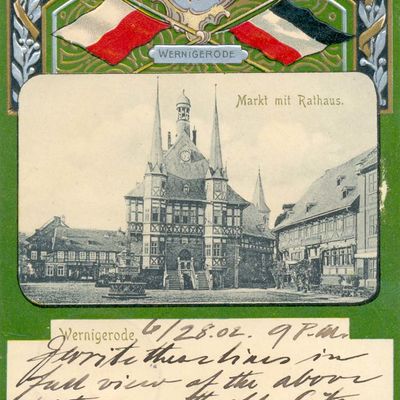 WERNIGERODE
Markt mit Rathaus.
Wernigerode, 6/28.02. 9 P.M.
I write these lines in
full view of the above